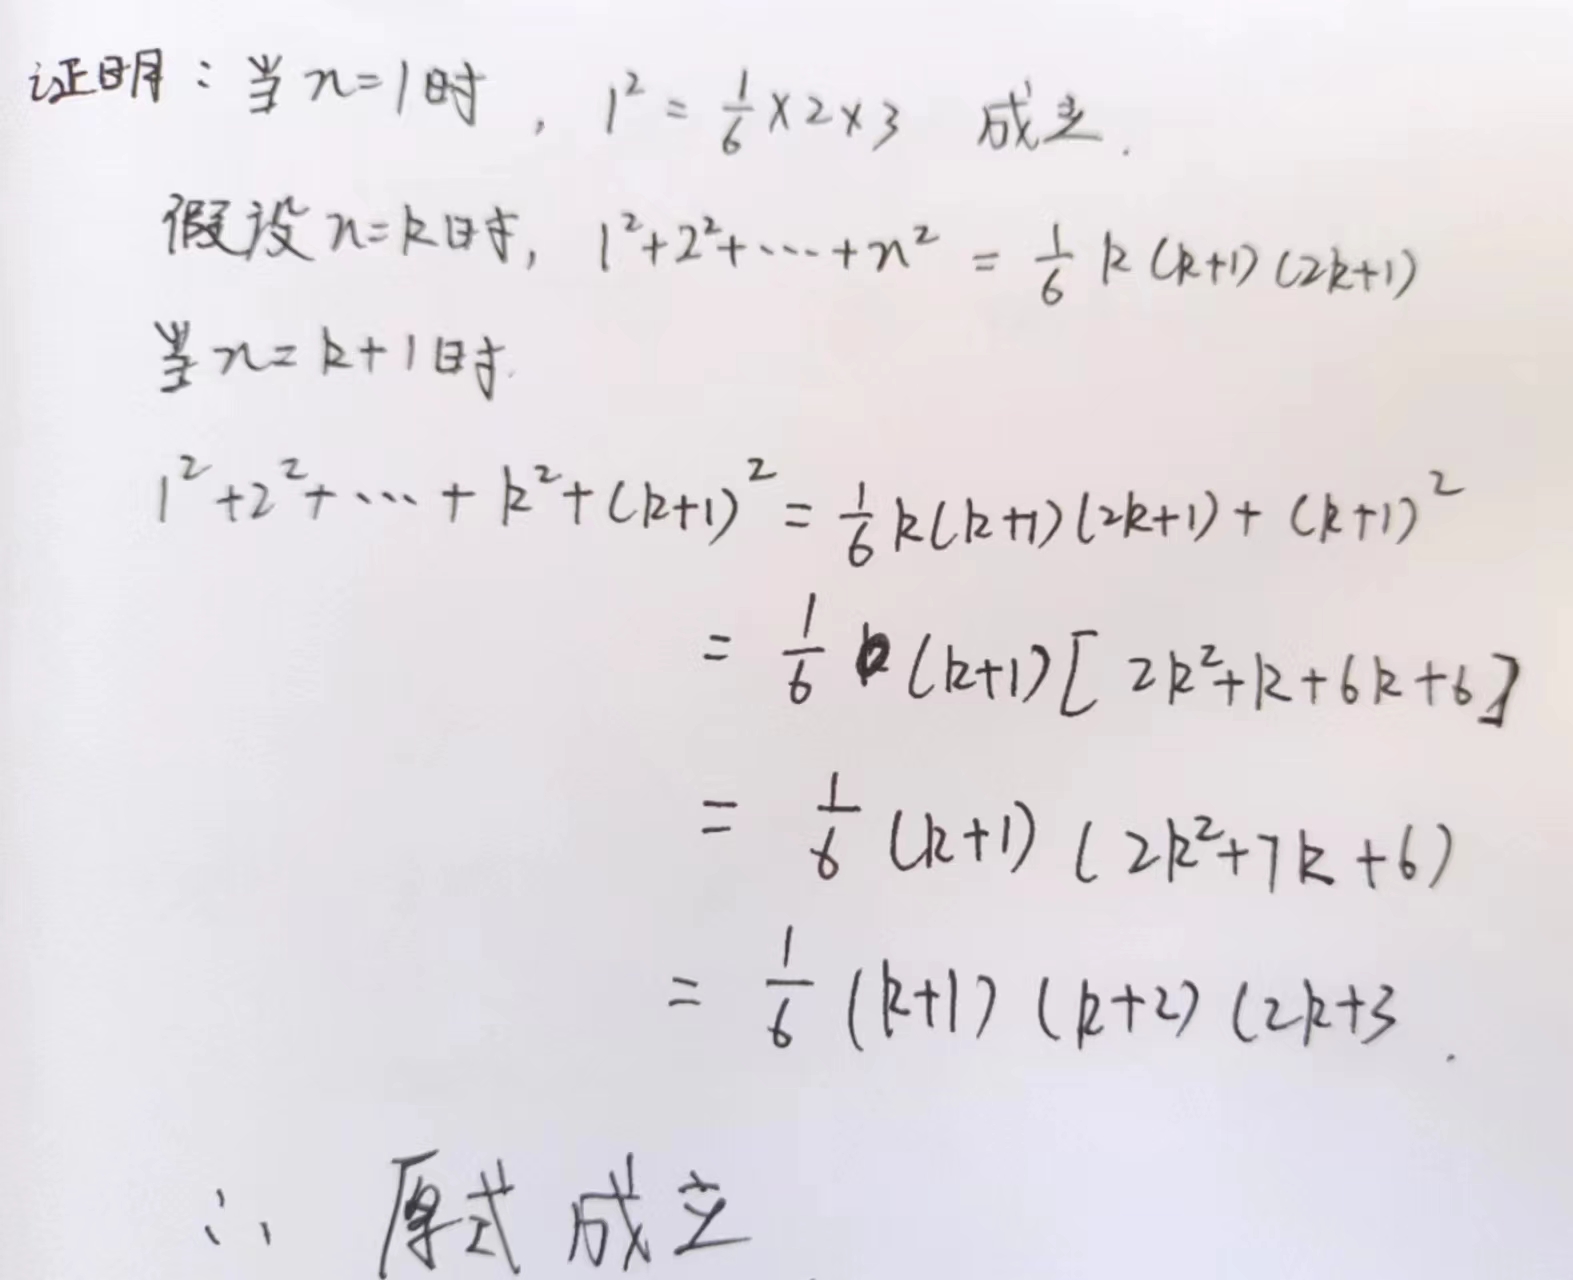 证明：当 n=1时，1² = 1/6 ×2×3 成立.
假设 n=k时，1²+2²+⋯+n² = 1/6 k(k+1)(2k+1)
当 n=k+1时.
1²+2²+⋯+k²+(k+1)² = 1/6 k(k+1)(2k+1)+(k+1)²
= 1/6 (k+1)[2k²+k+6k+6]
= 1/6 (k+1)(2k²+7k+6)
= 1/6 (k+1)(k+2)(2k+3.
∴ 原式成立